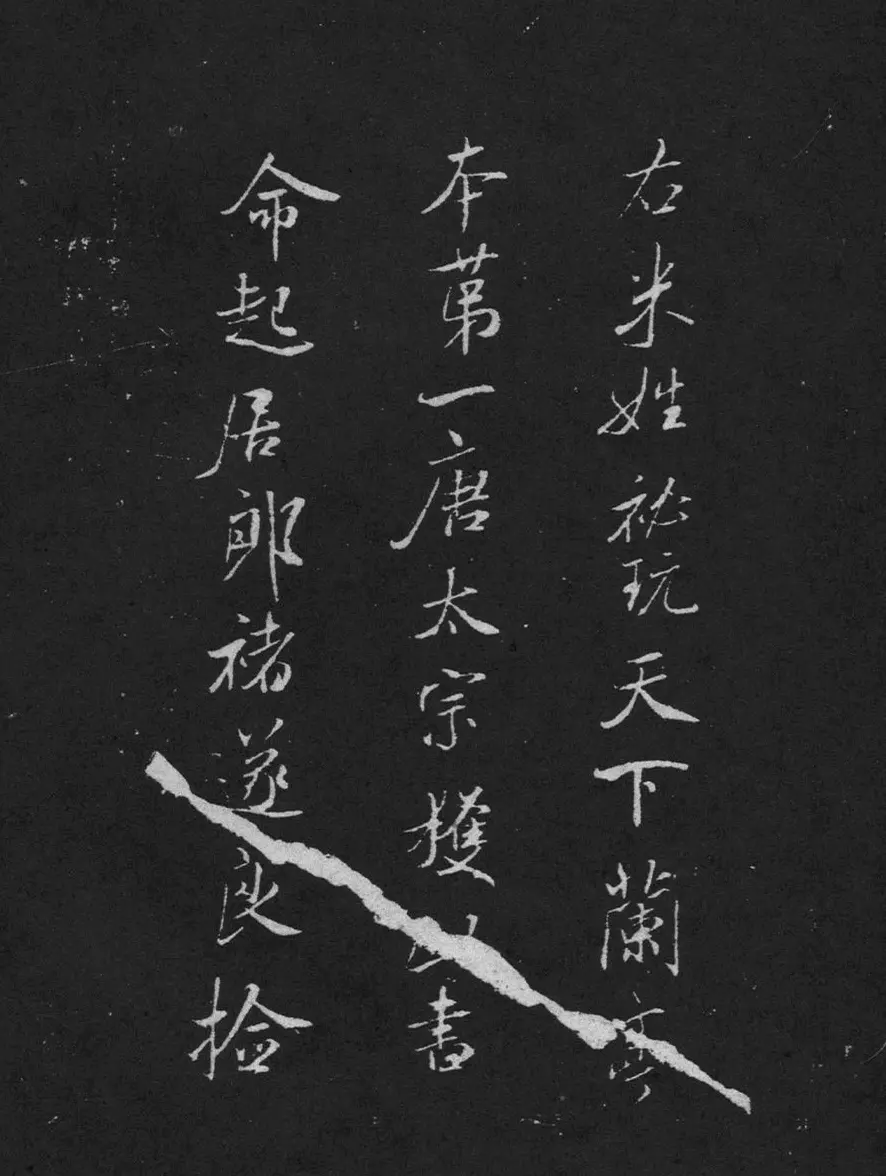 右米姓祕玩天下蘭亭
本第一唐太宗獲此書
命起居郎褚遂良捡